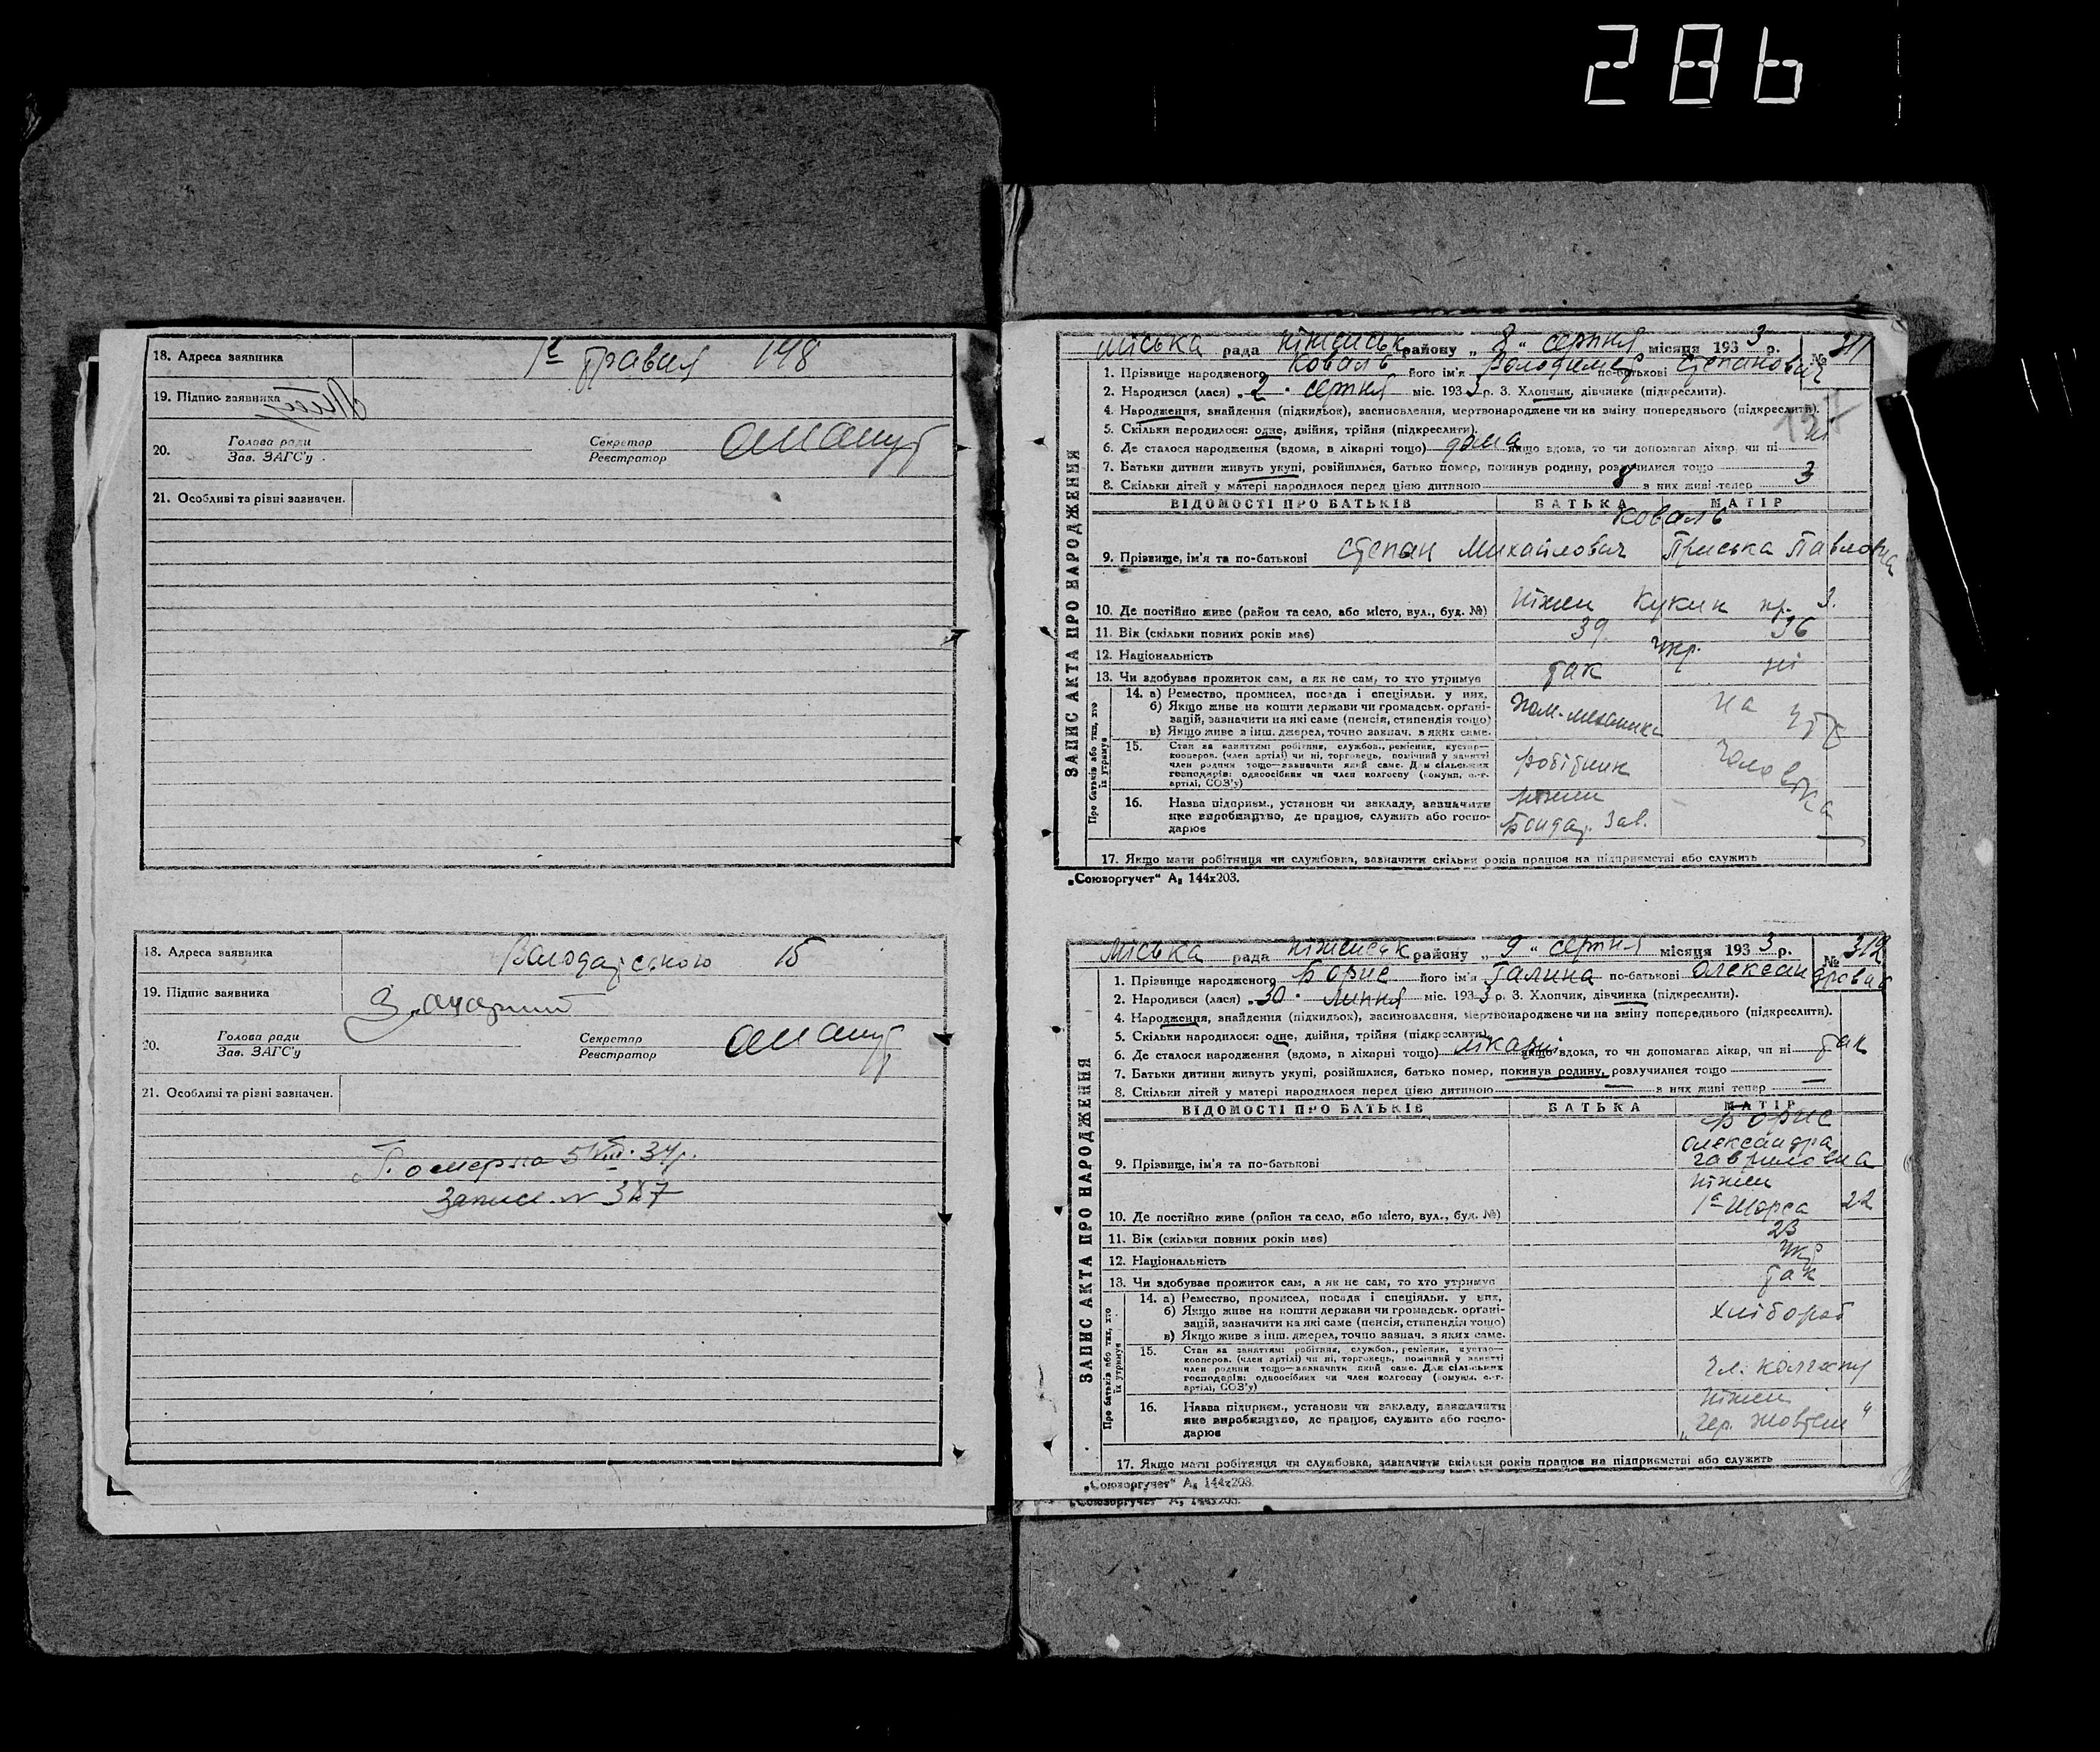 286
18. Адреса заявника 1е Травня 148
19. Підпис заявника
20. Голова ради
Зав. ЗАГС'у
Секретар
Реєстратор
21. Особливі та рівні зазначен.
18. Адреса заявника 15
19. Підпис заявника
20. Голова ради
Зав. ЗАГС'у
Секретар
Реєстратор
21. Особливі та рівні зазначен.
Померла 5 VIII. 34р.
Запис N
ЗАПИС АКТА ПРО НАРОДЖЕННЯ
Міська рада Ніженськ району „ 8 " серпня місяця 1933 р. № 311
1. Прізвище народженого Коваль його ім'я Володимер по-батькові Степанович
137
2. Народився (лася) „ 2 " серпня міс. 1933 р. 3. Хлопчик, дівчинка (підкреслити).
4. Народження, знайдення (підкидьок), засиновлення, мертвонароджене чи на зміну попереднього (підкреслити).
5. Скільки народилося: одне, двійня, трійня (підкреслити).
6. Де сталося народження (вдома, в лікарні тощо) дома якщо вдома, то чи допомагав лікар, чи ні ні
7. Батьки дитини живуть укупі, розійшлися, батько помер, покинув родину, розлучилися тощо
8. Скільки дітей у матері народилося перед цією дитиною 8 з них живі тепер 3
ВІДОМОСТІ ПРО БАТЬКІВ БАТЬКА МАТІР
Коваль
9. Прізвище, ім'я та по-батькові Степан Михайлович Приська Павловна
10. Де постійно живе (район та село, або місто, вул., буд. №) Ніжен Кукин пр. 3.
11. Вік (скільки повних років має) 39 36
12. Національність Укр.
13. Чи здобуває прожиток сам, а як не сам, то хто утримує так ні
Про батьків або тих, хто їх утримує
14. а) Ремество, промисел, посада і спеціяльн. у них.
б) Якщо живе на кошти держави чи громадськ. органі-
зацій, зазначити на які саме (пенсія, стипендія тощо)
в) Якщо живе з інш. джерел, точно зазнач. з яких саме.
Пом. механика На утр
15. Стан за заняттям: робітник, службов., ремісник, кустар—
кооперов. (член артілі) чи ні, торговець, помічний у занятті
член родини тощо—зазначити який саме. Для сільських
господарів: одноосібник чи член колгоспу (комуни, с.-г.
артілі, СОЗ'у)
робітник чоловіка
16. Назва підприєм., установи чи закладу, зазначити
яке виробництво, де працює, служить або госпо-
дарює
Ніжен
Бондар. Зав.
17. Якщо мати робітниця чи службовка, зазначити скільки років працює на підприємстві або служить
„Союзоргучет" А₅ 144х203.
ЗАПИС АКТА ПРО НАРОДЖЕННЯ
Міська рада Ніженськ району „ 9 " серпня місяця 1933 р. № 312
1. Прізвище народженого Борис його ім'я Галина по-батькові Олександровна
2. Народився (лася) „ 30 " липня міс. 1933 р. 3. Хлопчик, дівчинка (підкреслити).
4. Народження, знайдення (підкидьок), засиновлення, мертвонароджене чи на зміну попереднього (підкреслити).
5. Скільки народилося: одне, двійня, трійня (підкреслити).
6. Де сталося народження (вдома, в лікарні тощо) лікарні якщо вдома, то чи допомагав лікар, чи ні так
7. Батьки дитини живуть укупі, розійшлися, батько помер, покинув родину, розлучилися тощо —
8. Скільки дітей у матері народилося перед цією дитиною — з них живі тепер —
ВІДОМОСТІ ПРО БАТЬКІВ БАТЬКА МАТІР
Борис
Олександра
9. Прізвище, ім'я та по-батькові Гавриловна
Ніжен
10. Де постійно живе (район та село, або місто, вул., буд. №) 1а Щорса 22
11. Вік (скільки повних років має) 23
12. Національність Укр
13. Чи здобуває прожиток сам, а як не сам, то хто утримує так
Про батьків або тих, хто їх утримує
14. а) Ремество, промисел, посада і спеціяльн. у них.
б) Якщо живе на кошти держави чи громадськ. органі-
зацій, зазначити на які саме (пенсія, стипендія тощо)
в) Якщо живе з інш. джерел, точно зазнач. з яких саме.
хлібороб
15. Стан за заняттям: робітник, службов., ремісник, кустар—
кооперов. (член артілі) чи ні, торговець, помічний у занятті
член родини тощо—зазначити який саме. Для сільських
господарів: одноосібник чи член колгоспу (комуни, с.-г.
артілі, СОЗ'у)
чл. колгоспу
16. Назва підприєм., установи чи закладу, зазначити
яке виробництво, де працює, служить або госпо-
дарює
Ніжен
„Чер. Жовтень"
17. Якщо мати робітниця чи службовка, зазначити скільки років працює на підприємстві або служить
„Союзоргучет" А₅ 144х203.
„Союзоргучет" А₅ 144х203.